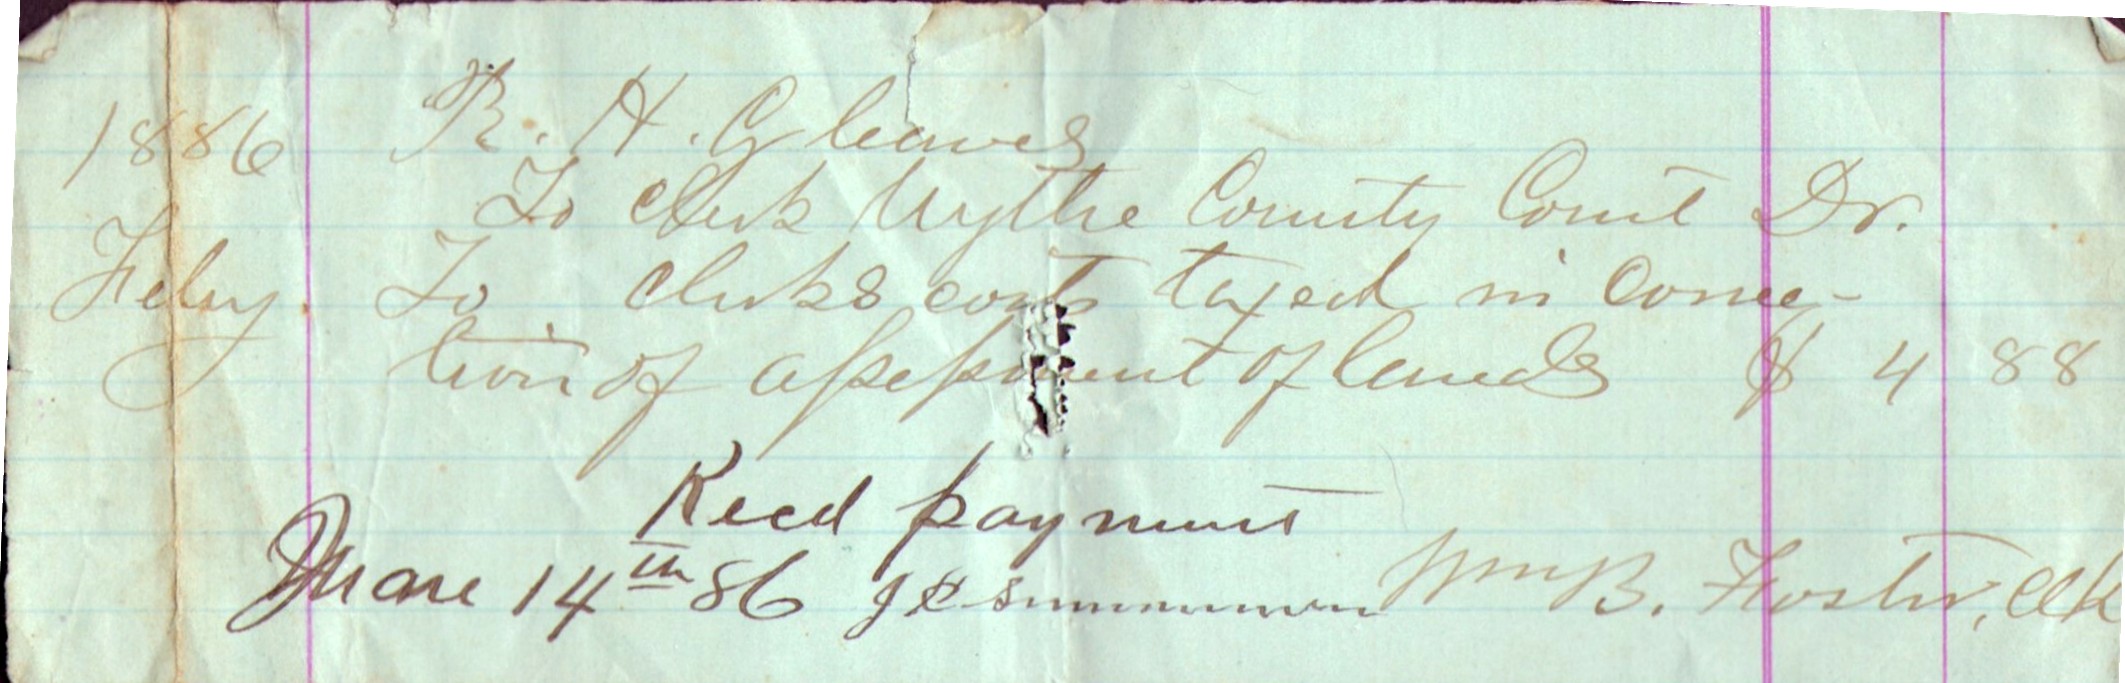 1886 R. H. Gleaves
To Clerk Wythe County Court Dr.
Feby To clerks costs taxed in correc-
tion of assessment of lands $ 4 88
Recd payment
14th 86 J
Wm B. Foster, Clk